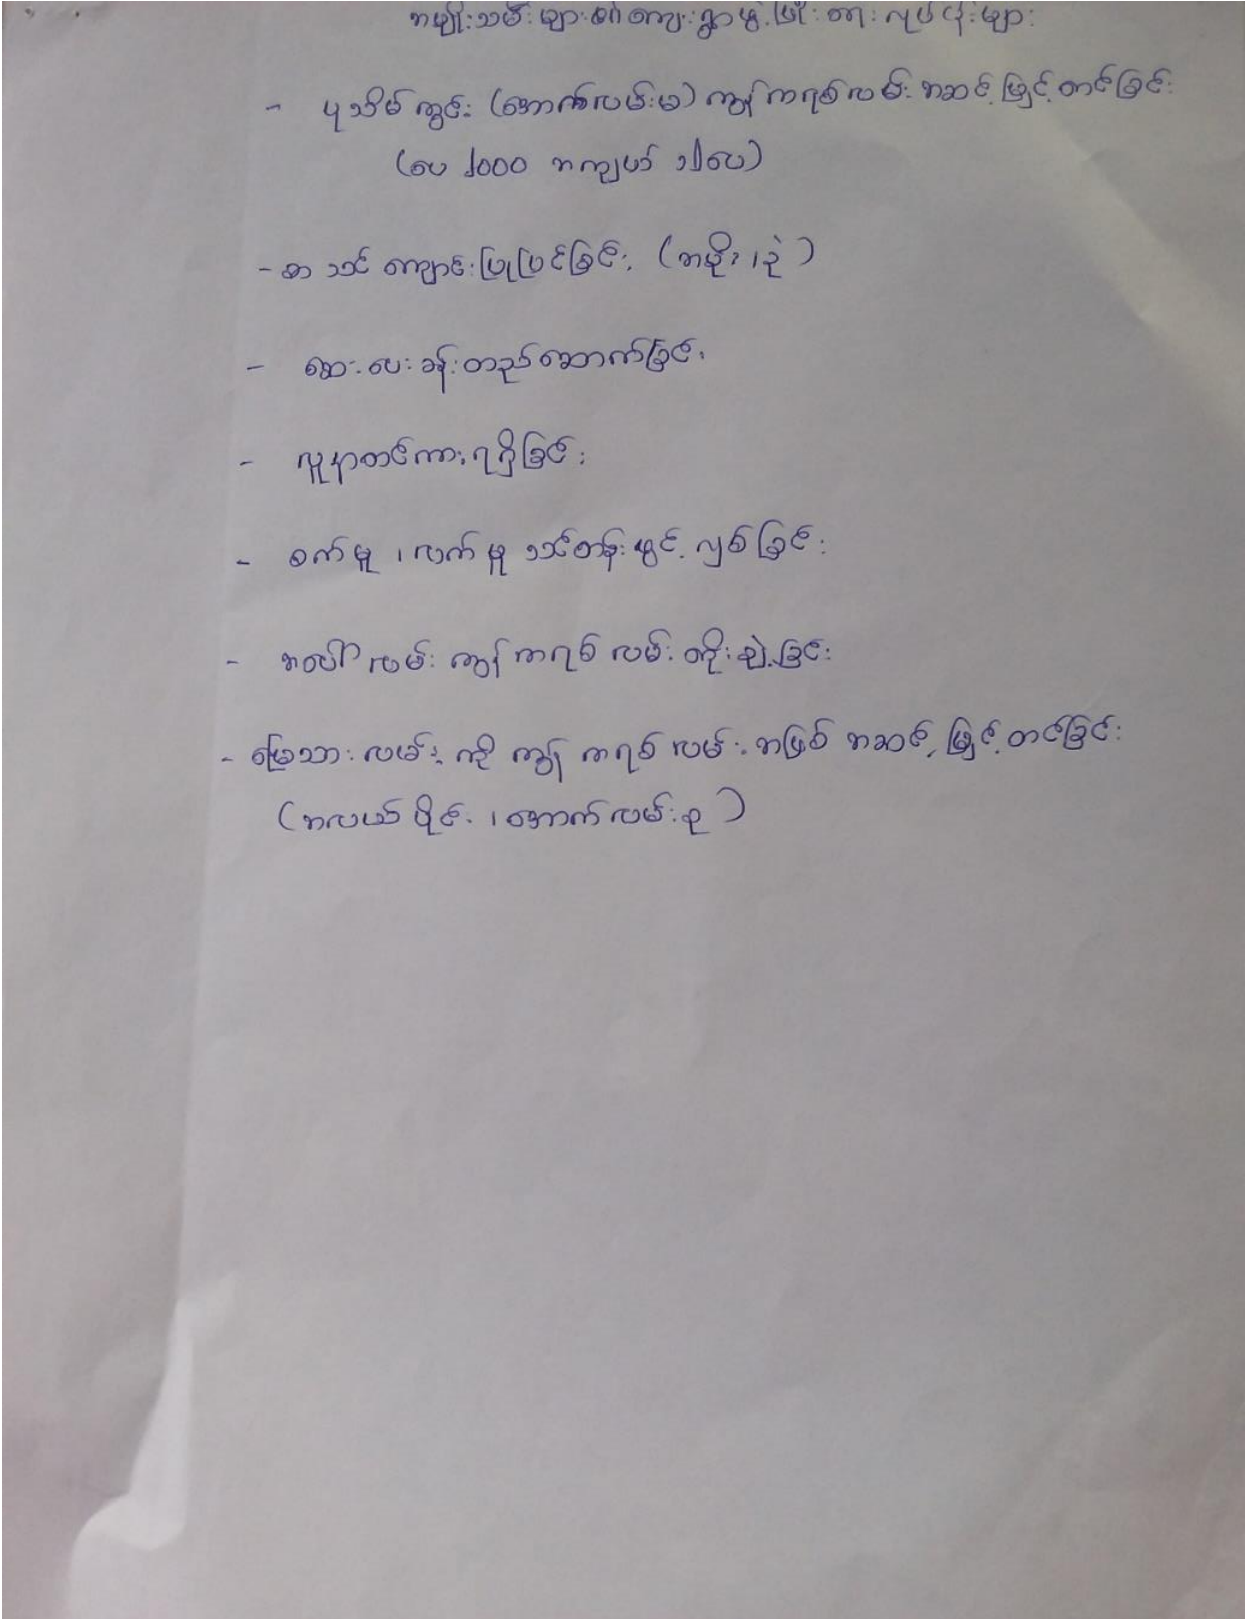 အမျိုးသမီးများ၏ ကျေးရွာဖွံ့ဖြိုးရေး လုပ်ငန်းများ
- ပုသိမ်တွင်း (အောက်လမ်းမ) ကွန်ကရစ်လမ်း အဆင့်မြှင့်တင်ခြင်း
(ပေ ၂၀၀၀ အကျယ် ၁၂ပေ)
- စာသင်ကျောင်းပြုပြင်ခြင်း (အမိုး၊ နံ)
- ဆေးပေးခန်းတည်ဆောက်ခြင်း
- လူနာတင်ကားရရှိခြင်း
- စက်မှု ၊ လက်မှု သင်တန်းဖွင့်လှစ်ခြင်း
- အပေါ်လမ်း ကွန်ကရစ်လမ်း တိုးချဲ့ခြင်း
- မြေသားလမ်းကို ကွန်ကရစ်လမ်းအဖြစ် အဆင့်မြှင့်တင်ခြင်း
(အလယ်ပိုင်း ၊ အောက်လမ်းခု)